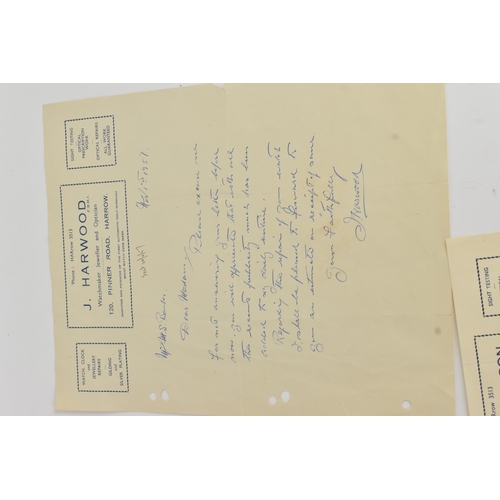 WATCH, CLOCK
and
JEWELLERY
REPAIRS
GILDING
and
SILVER PLATING
Phone : HARrow 3513
J. HARWOOD,
Watchmaker Jeweller and Optician
120, PINNER ROAD, HARROW.
SIGHT TESTING
OPTICAL
PRESCRIPTION
WORK
OPTICAL REPAIRS
ALL WORK
GUARANTEED
1957
Dear Madam, Please excuse me
for not answering your letter before
now you will appreciate that with all
the recent publicity much has been
added to my daily routine.
Regarding the repair of your watch
I shall be pleased to forward to
you an estimate on receipt of same
Yours Faithfully
J Harwood
SIGHT TESTING
3513